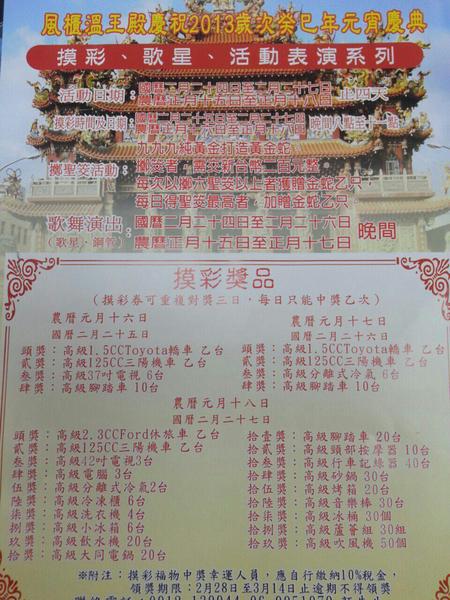 風櫃溫王殿慶祝2013歲次癸巳年元宵慶典
摸彩、歌星、活動表演系列
活動日期：國曆二月二十四日至二月二十七日 止四天
農曆正月十五日至正月十八日
摸彩時間及日期：國曆二月二十五日至二月二十七日 晚間八點至十一點
農曆正月十六日至正月十八日
九九九純黃金打造黃金蛇
擲聖筊活動：擲筊者，需交新台幣二百元整。
每次以擲六聖筊以上者獲贈金蛇乙只，
每日得聖筊最高者，加贈金蛇乙只。
歌舞演出：國曆二月二十四日至二月二十六日 晚間
（歌星、鋼管）農曆正月十五日至正月十七日
摸彩獎品
（摸彩券可重複對獎三日，每日只能中獎乙次）
農曆元月十六日
國曆二月二十五日
頭獎：高級1.5CCToyota轎車 乙台
貳獎：高級125CC三陽機車 乙台
叁獎：高級37吋電視 6台
肆獎：高級腳踏車 10台
農曆元月十七日
國曆二月二十六日
頭獎：高級1.5CCToyota轎車 乙台
貳獎：高級125CC三陽機車 乙台
叁獎：高級分離式冷氣 6台
肆獎：高級腳踏車 10台
農曆元月十八日
國曆二月二十七日
頭獎：高級2.3CCFord休旅車 乙台
貳獎：高級125CC三陽機車 乙台
叁獎：高級42吋電視3台
肆獎：高級電腦 3台
伍獎：高級分離式冷氣2台
陸獎：高級冷凍櫃 6台
柒獎：高級洗衣機 4台
捌獎：高級小冰箱 6台
玖獎：高級飲水機 20台
拾獎：高級大同電鍋 20台
拾壹獎：高級腳踏車 20台
拾貳獎：高級頸部按摩器 10台
拾叁獎：高級行車記錄器 40台
拾肆獎：高級砂鍋 30台
拾伍獎：高級烤箱 20台
拾陸獎：高級音樂棒 30台
拾柒獎：高級冰桶 30個
拾捌獎：高級蘆薈組 30組
拾玖獎：高級吹風機 50個
※附注：摸彩福物中獎幸運人員，應自行繳納10%稅金，
領獎期限：2月28日至3月14日止逾期不得領獎